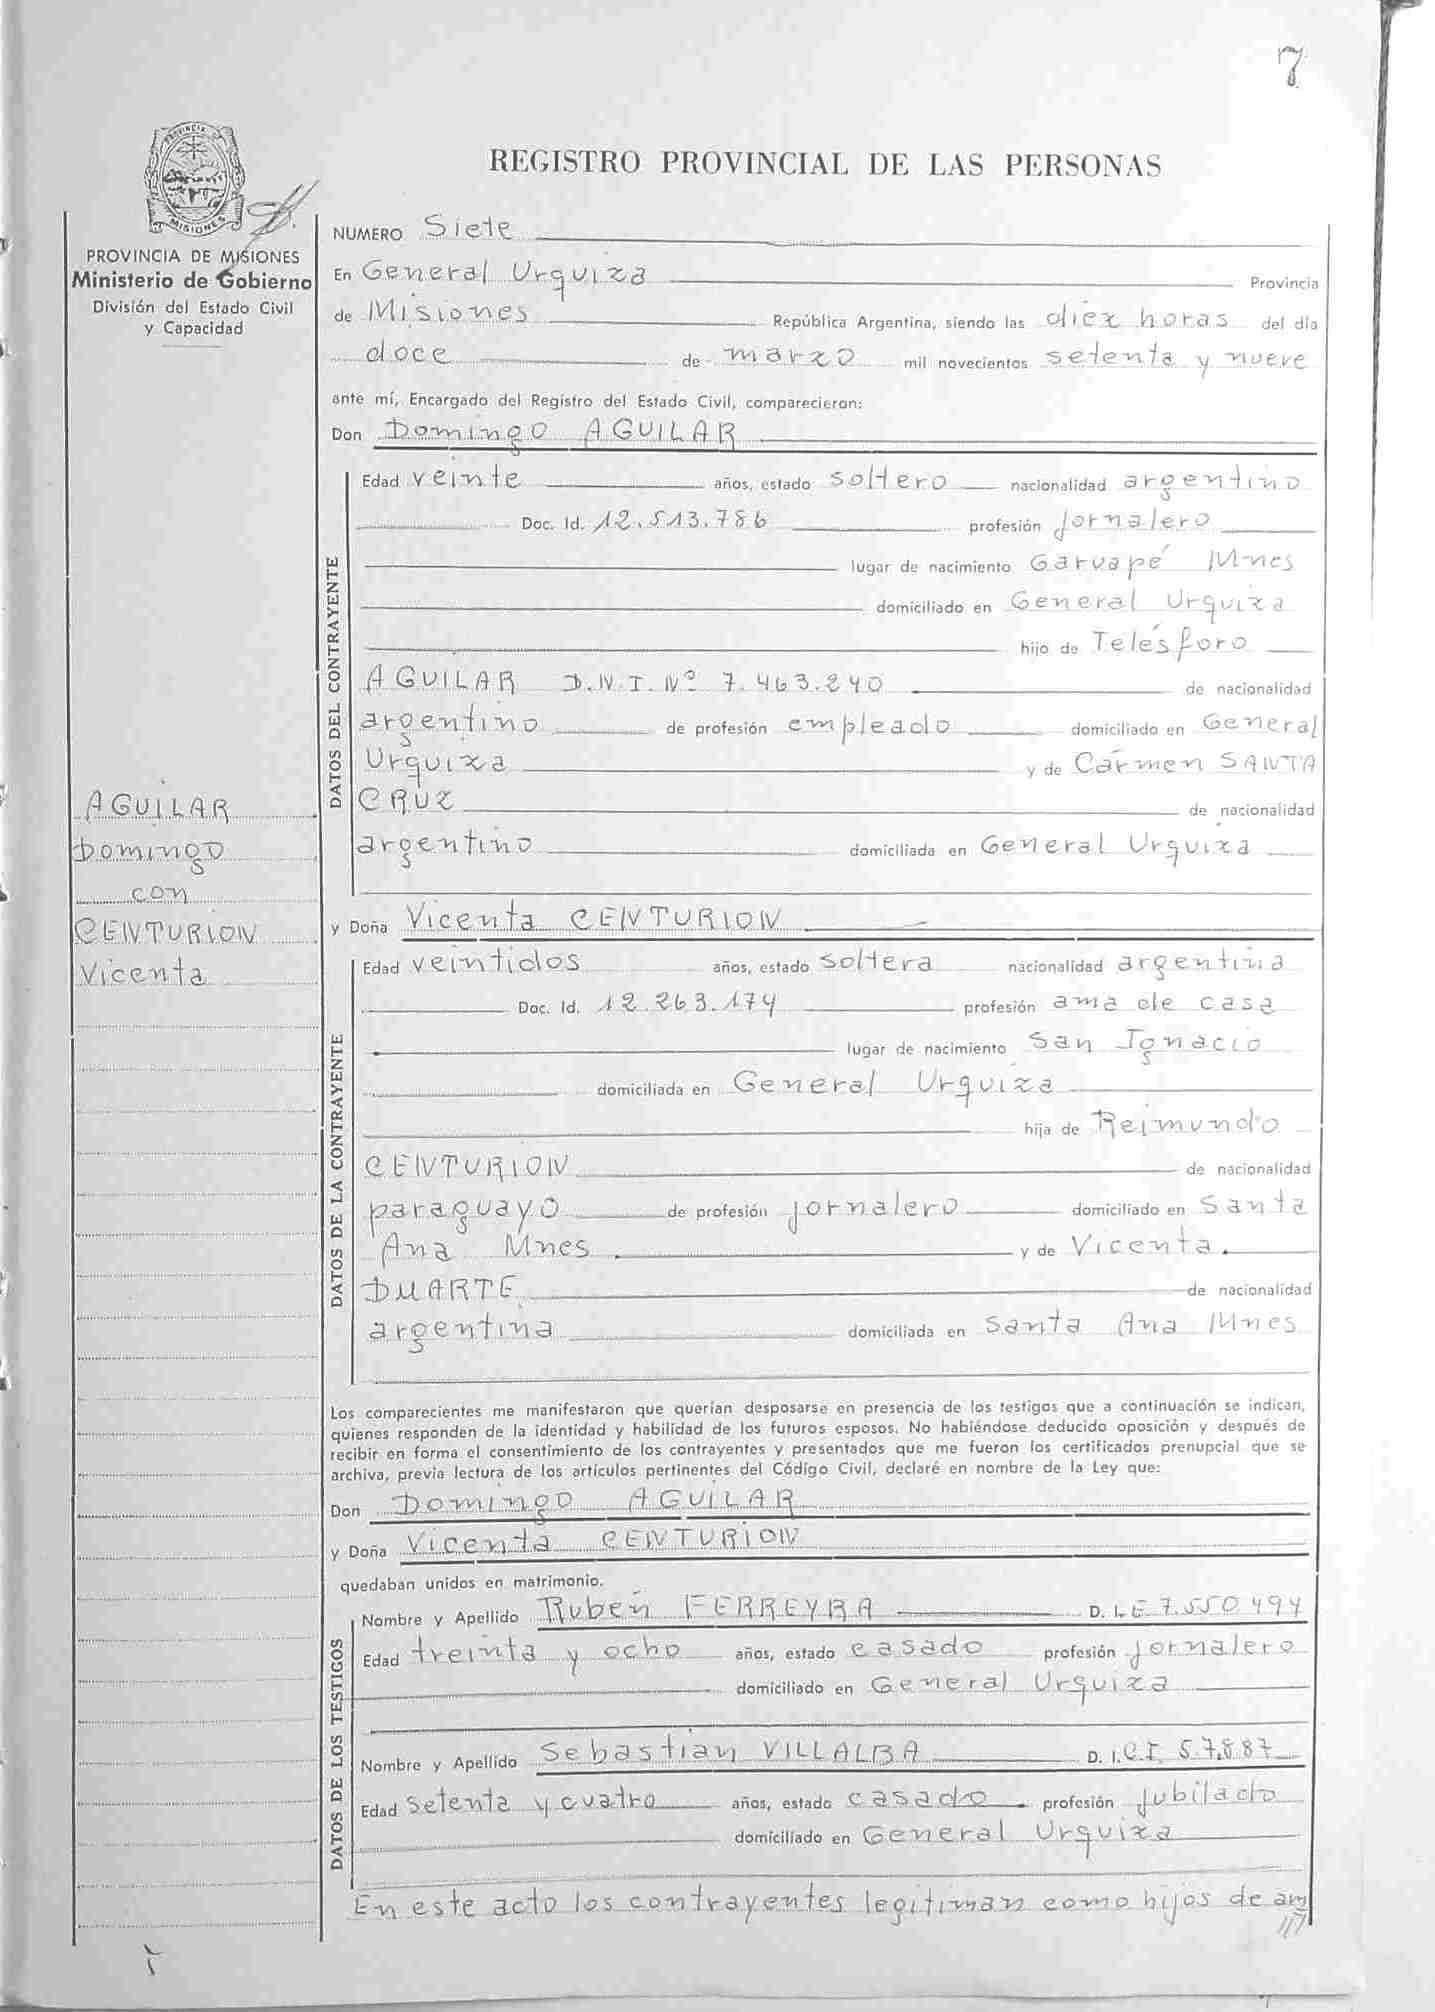 7
REGISTRO PROVINCIAL DE LAS PERSONAS
PROVINCIA DE MISIONES
Ministerio de Gobierno
División del Estado Civil
y Capacidad
NUMERO Siete
En General Urquiza Provincia
de Misiones República Argentina, siendo las diez horas del día
doce de marzo mil novecientos setenta y nueve
ante mí, Encargado del Registro del Estado Civil, comparecieron:
Don Domingo AGUILAR
DATOS DEL CONTRAYENTE
Edad veinte años, estado soltero nacionalidad argentino
Doc. Id. 12.513.786 profesión jornalero
lugar de nacimiento Garuapé Mnes
domiciliado en General Urquiza
hijo de Telésforo
AGUILAR D.N.I. Nº 7.463.240 de nacionalidad
argentino de profesión empleado domiciliado en General
Urquiza y de Carmen SANTA
CRUZ de nacionalidad
argentino domiciliada en General Urquiza
AGUILAR
Domingo
con
CENTURION
Vicenta
y Doña Vicenta CENTURION
DATOS DE LA CONTRAYENTE
Edad veintidos años, estado soltera nacionalidad argentina
Doc. Id. 12.263.174 profesión ama de casa
lugar de nacimiento San Ignacio
domiciliada en General Urquiza
hija de Reimundo
CENTURION de nacionalidad
paraguayo de profesión jornalero domiciliado en Santa
Ana Mnes y de Vicenta
DUARTE de nacionalidad
argentina domiciliada en Santa Ana Mnes
Los comparecientes me manifestaron que querían desposarse en presencia de los testigos que a continuación se indican,
quienes responden de la identidad y habilidad de los futuros esposos. No habiéndose deducido oposición y después de
recibir en forma el consentimiento de los contrayentes y presentados que me fueron los certificados prenupcial que se
archiva, previa lectura de los artículos pertinentes del Código Civil, declaré en nombre de la Ley que:
Don Domingo AGUILAR
y Doña Vicenta CENTURION
quedaban unidos en matrimonio.
DATOS DE LOS TESTIGOS
Nombre y Apellido Rubén FERREYRA D. L.E 7.550.494
Edad treinta y ocho años, estado casado profesión jornalero
domiciliado en General Urquiza
Nombre y Apellido Sebastian VILLALBA D. I. C.I. 57.887
Edad Setenta y cuatro años, estado casado profesión jubilado
domiciliado en General Urquiza
En este acto los contrayentes legitiman como hijos de am